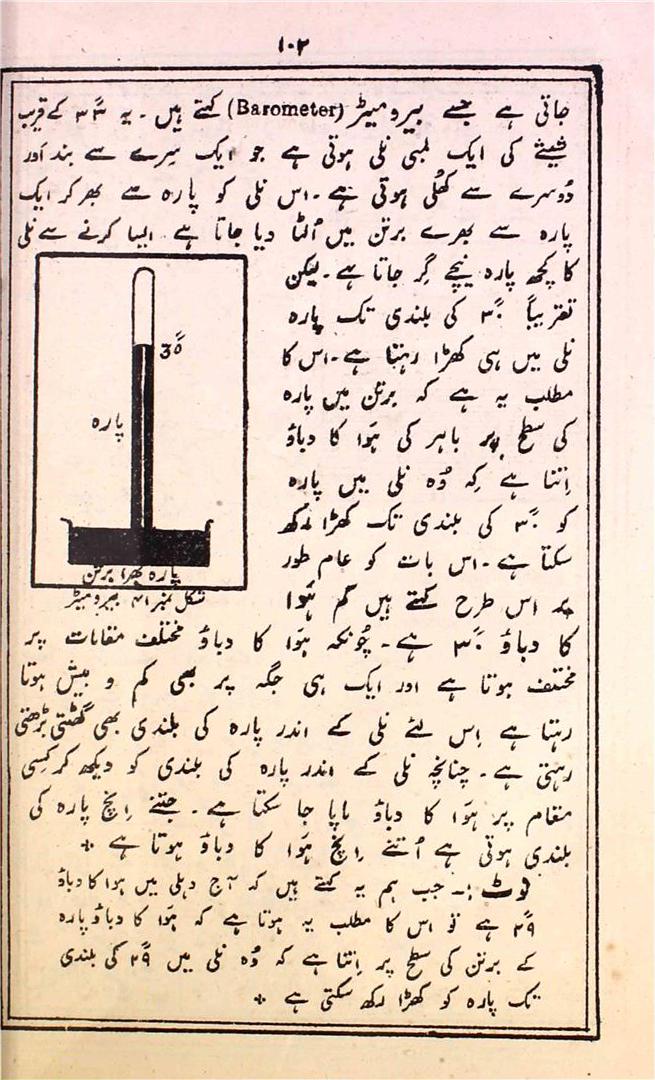 ۱۰۲
جاتی ہے جسے بیرومیٹر (Barometer) کہتے ہیں۔ یہ ۳۳ً کے قریب
شیشے کی ایک لمبی نلی ہوتی ہے جو ایک سِرے سے بند اَور
دُوسرے سے کھُلی ہوتی ہے۔ اس نلی کو پارہ سے بھر کر ایک
پارہ سے بھرے برتن میں اُلٹا دیا جاتا ہے۔ ایسا کرنے سے نلی
کا کچھ پارہ نیچے گِر جاتا ہے۔ لیکن
تقریباً ۳۰ً کی بلندی تک پارہ
نلی میں ہی کھڑا رہتا ہے۔ اس کا
مطلب یہ ہے کہ برتن میں پارہ
کی سطح پر باہر کی ہَوا کا دباؤ
اِتنا ہے کِہ وُہ نلی میں پارہ
کو ۳۰ً کی بلندی تک کھڑا رکھ
سکتا ہے۔ اس بات کو عام طور
پر اس طرح کہتے ہیں کہ ہَوا
کا دباؤ ۳۰ً ہے۔ چُونکہ ہَوا کا دباؤ مختلف مقامات پر
مختلف ہوتا ہے اور ایک ہی جگہ پر بھی کم و بیش ہوتا
رہتا ہے اِس لئے نلی کے اندر پارہ کی بلندی بھی گھٹتی بڑھتی
رہتی ہے۔ چنانچہ نلی کے اندر پارہ کی بلندی کو دیکھ کر کسی
مقام پر ہَوا کا دباؤ ماپا جا سکتا ہے۔ جتنے اِنچ پارہ کی
بلندی ہوتی ہے اُتنے اِنچ ہَوا کا دباؤ ہوتا ہے ٭
نوٹ :۔ جب ہم یہ کہتے ہیں کہ آج دہلی میں ہوا کا دباؤ
۲۹ً ہے تو اس کا مطلب یہ ہوتا ہے کہ ہَوا کا دباؤ پارہ
کے برتن کی سطح پر اِتنا ہے کہ وُہ نلی میں ۲۹ً کی بلندی
تک پارہ کو کھڑا رکھ سکتی ہے ٭
30ً
پارہ
پارہ بھرا برتن
شکل نمبر ۴۱ بیرومیٹر